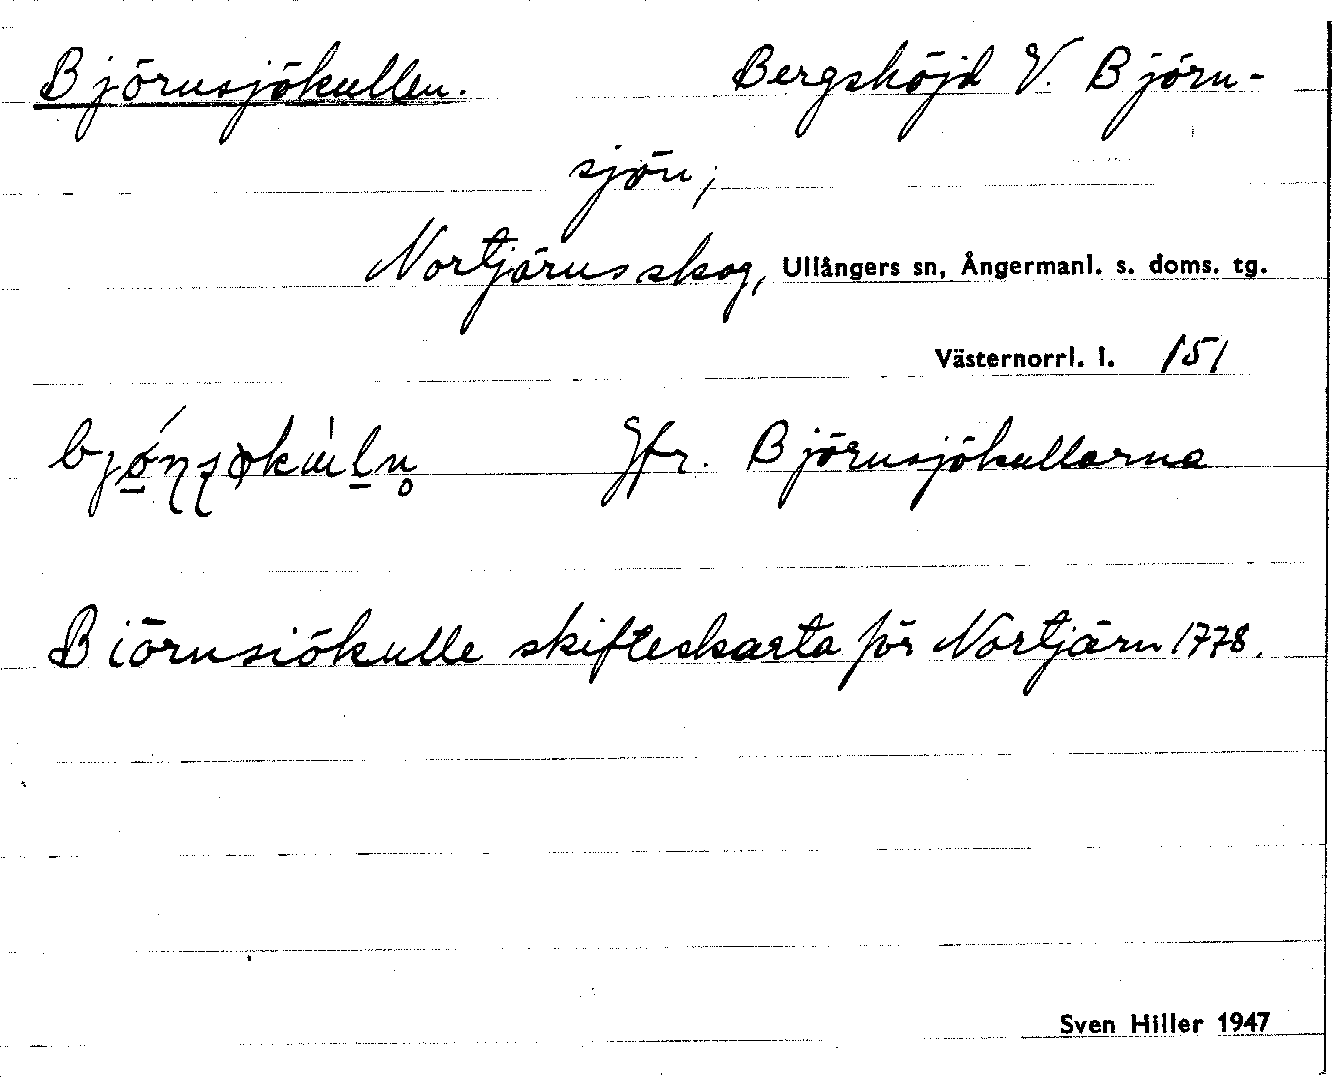 Björnsjökullen. Bergshöjd V. Björn-
sjön,
Nortjärns skog, Ullångers sn, Ångermanl. s. doms. tg.
Västernorrl. l. 151
Jfr. Björnsjökullarna
Biörnsiökulle skifteskarta för Nortjärn 1778.
Sven Hiller 1947